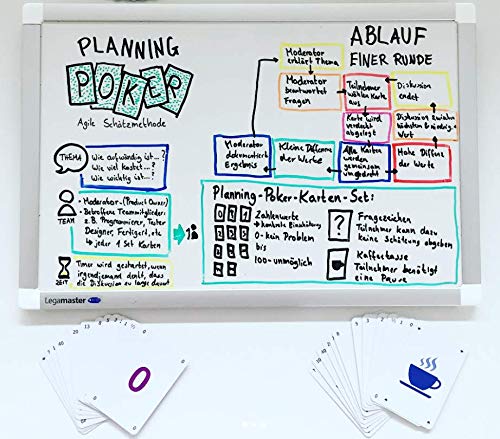 PLANNING
POKER
Agile Schätzmethode
THEMA
Wie aufwändig ist...?
Wie viel kostet...?
Wie wichtig ist...?
TEAM
- Moderator (Product Owner)
- Betroffene Teammitglieder:
z.B. Programmierer, Tester
Designer, Fertiger, etc
→ jeder 1 Set Karten
ZEIT
Timer wird gestartet, wenn
irgendjemand denkt, dass
die Diskussion zu lange dauert
ABLAUF
EINER RUNDE
Moderator
erklärt Thema
Moderator
beantwortet
Fragen
Teilnehmer
wählen Karte
aus
Diskussion
endet
Karte wird
verdeckt
abgelegt
Diskussion zwischen
höchsten & niedrig.
Wert
Moderator
dokumentiert
Ergebnis
Kleine Differenz
der Werte
Alle Karten
werden
gemeinsam
umgedreht
Hohe Differenz
der Werte
Planning-Poker-Karten-Set:
Zahlenwerte
→ konkrete Einschätzung
0 - kein Problem
bis
100 - unmöglich
?
Fragezeichen
Teilnehmer kann dazu
keine Schätzung abgeben
Kaffeetasse
Teilnehmer benötigt
eine Pause
Legamaster
20 13 8 5 3 2 ½ 0
40
0
0